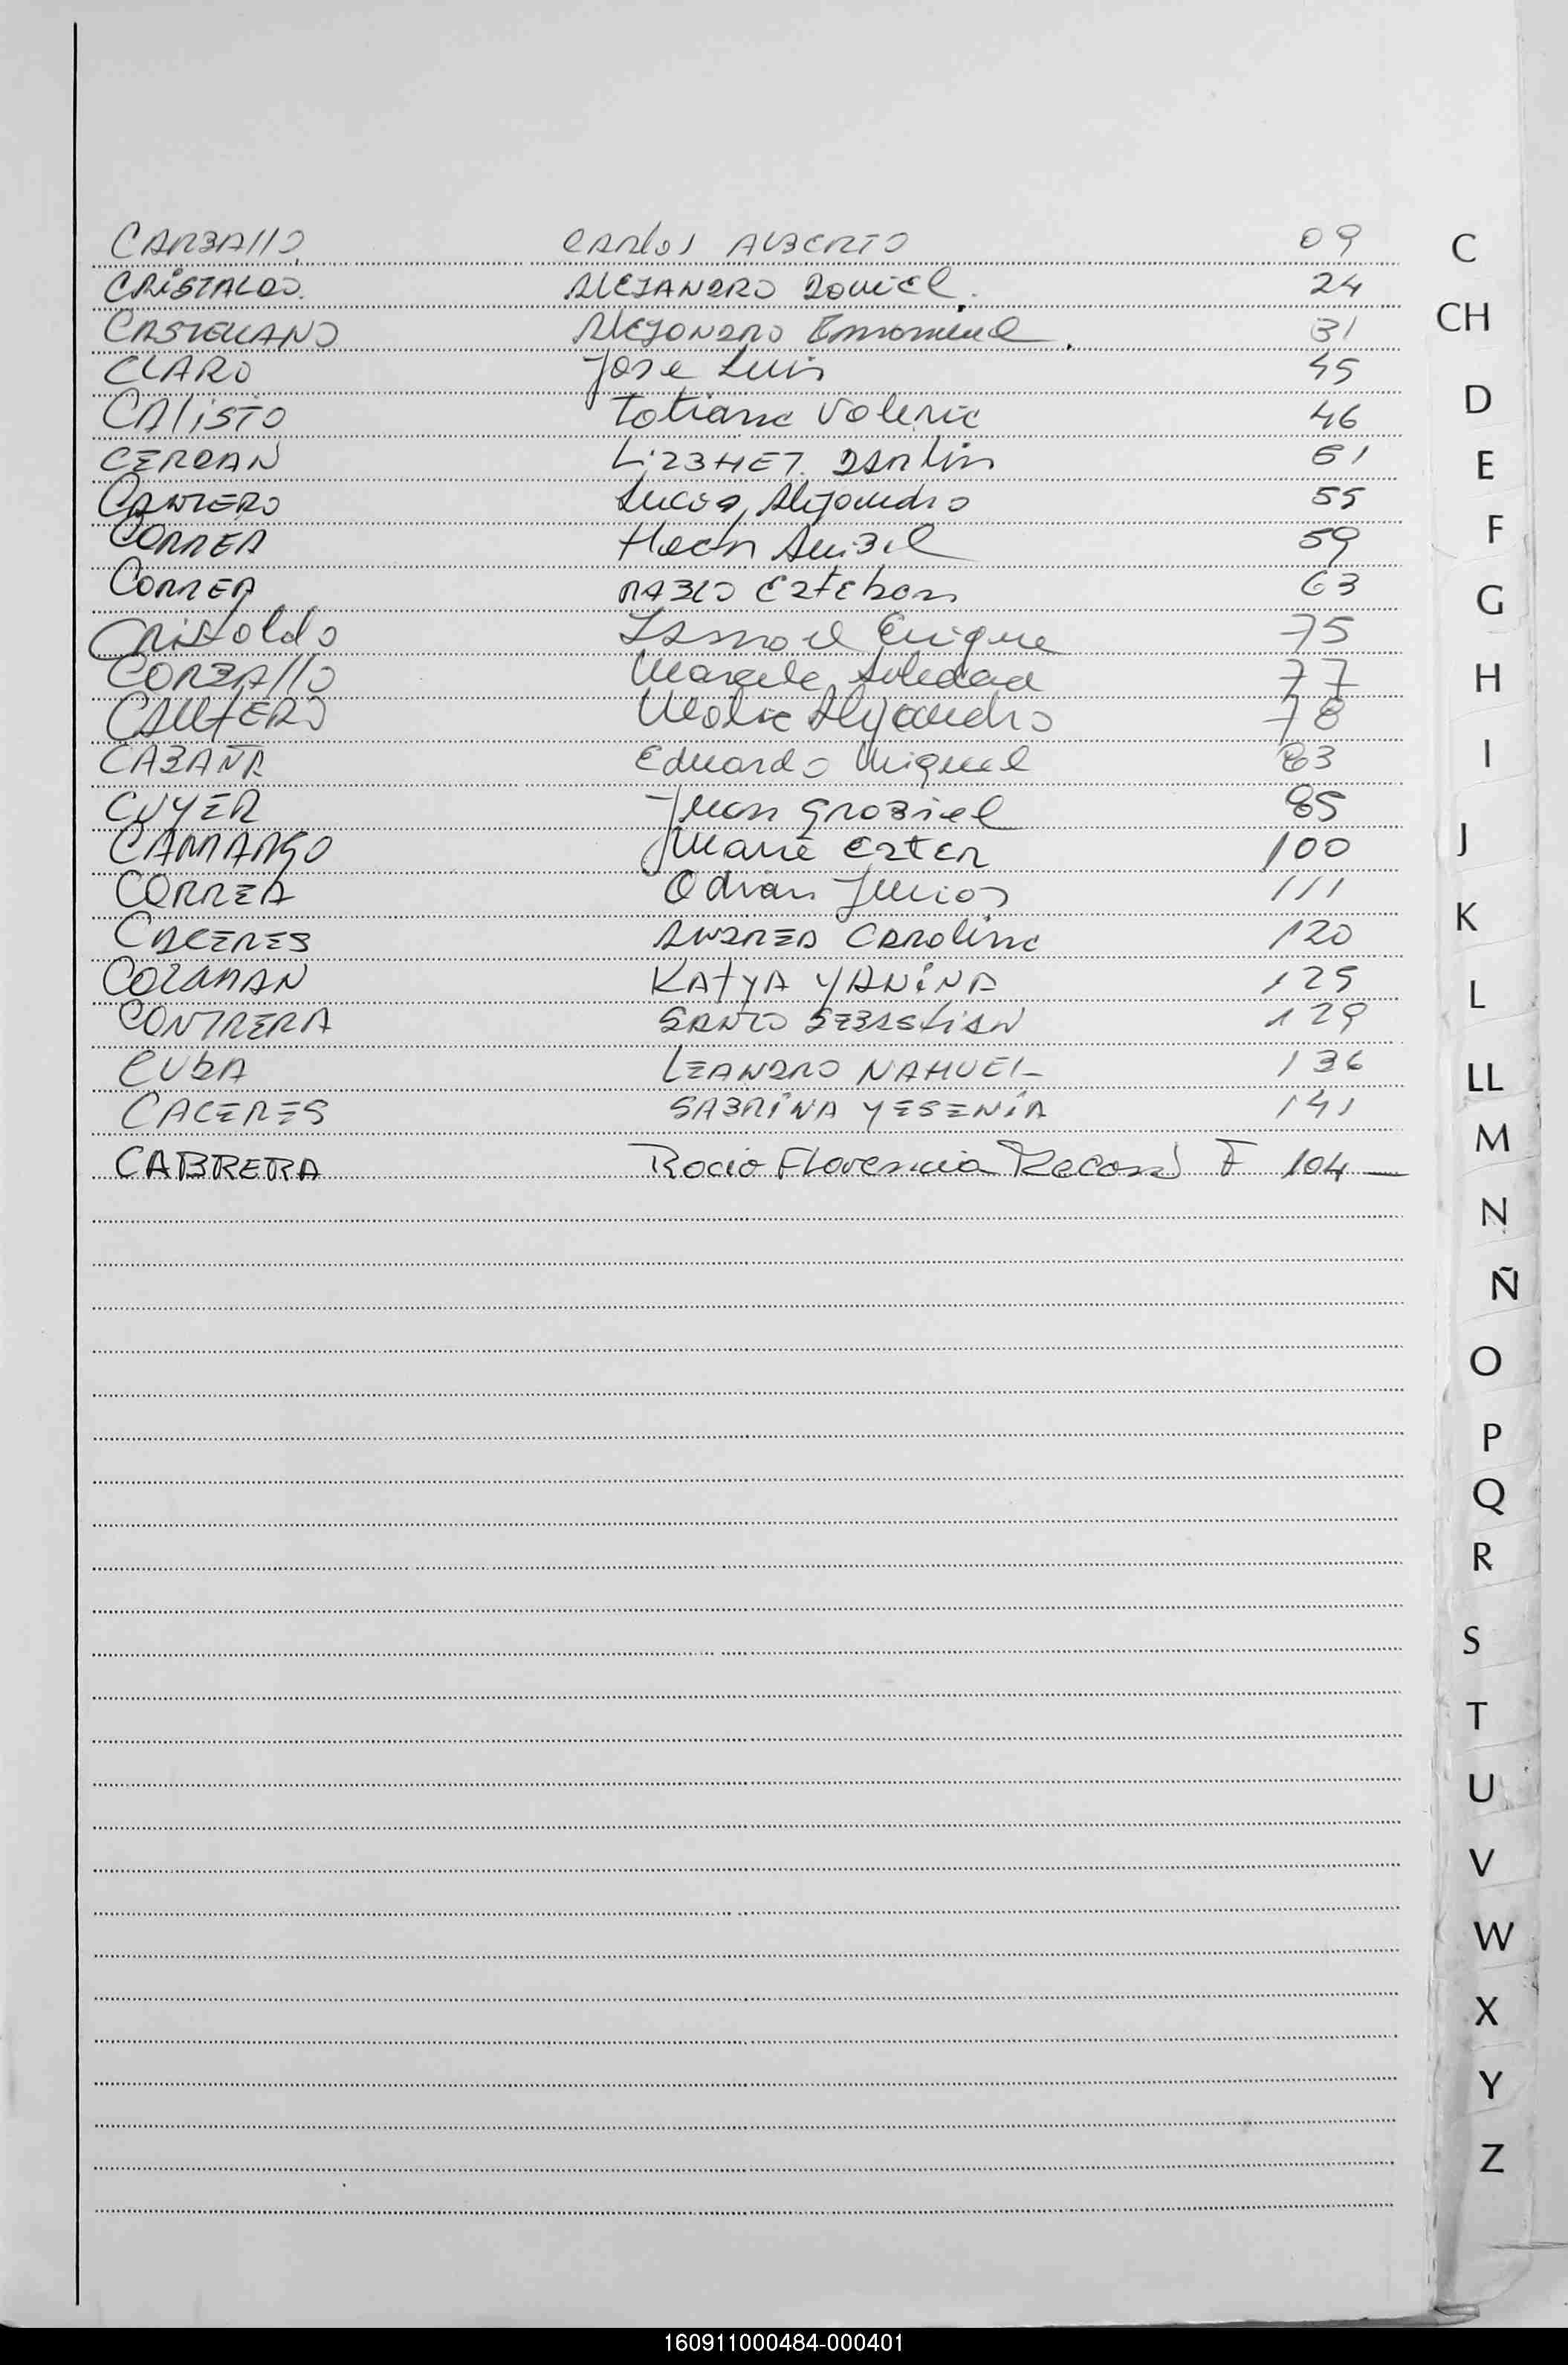 CARBAllO CARlos ALBERTO 09 C
CRiSTALDO. AlEJANDRO Daniel. 24
CASTELLANO AlEJANDRO Emmanuel. 31 CH
CLARO Jose Luis 45
CAliSTO Tatiana Valeria 46 D
CERDAN LiZBHET DARlin 61 E
CANTERO Lucas Alejandro 55
CORREA 59 F
CORREA PABLO Esteban 63 G
Cristaldo Ismael Enrique 75
CARBAllO Marcela Soledad 77 H
CANtERO Alejandro 78
CABAÑA Eduardo Miguel 83 I
CUYER Juan Grabiel 85
CAMARGO Maria EstER 100 J
CORREA Adrian 111
CACERES ANDREA CAROlina 120 K
KAtYA YANiNA 125
CONTRERA SANTO SEBAStiAN 129 L
CUbA LEANDRO NAHUEL 136
CACERES SABRiNA YESENiA 141 LL
CABRERA Rocio Florencia F 104 M
N
Ñ
O
P
Q
R
S
T
U
V
W
X
Y
Z
160911000484-000401